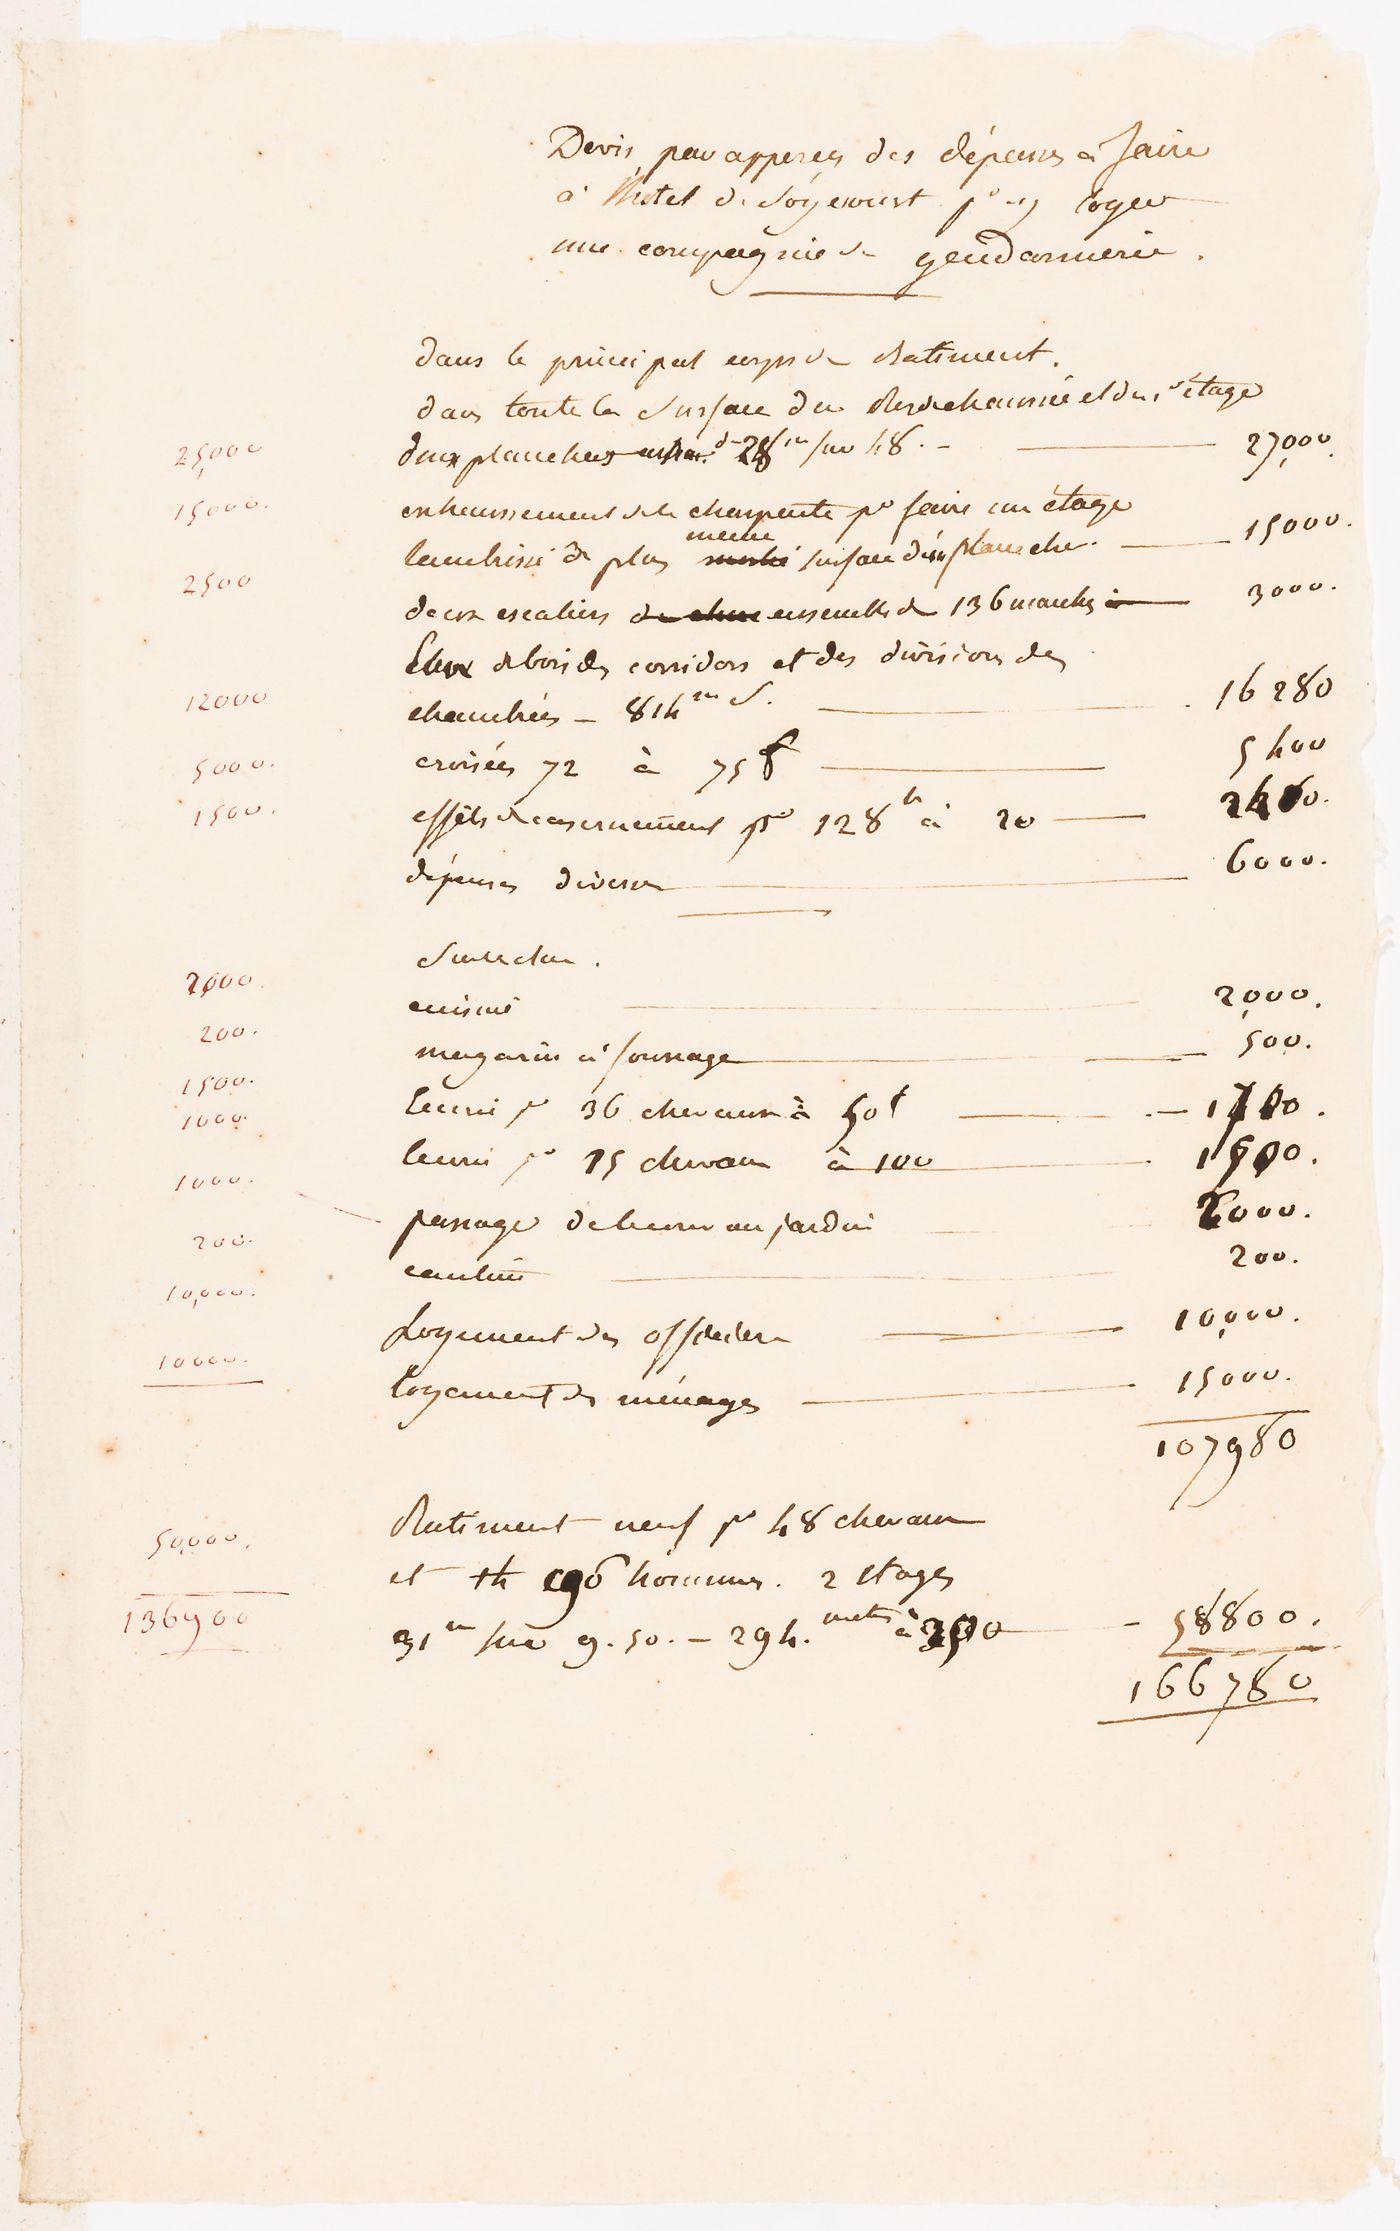 Devis par apperçu des dépenses à faire
à l'hotel de Soyecourt po y loger
une compagnie de gendarmerie.
dans le principal corps de Batiment.
dans toute la Surface du Rez de chaussée et du 1er étage
25,000 deux planchers de 28m sur 48. - 27,000.
15000. exhaussement de la charpente po faire un étage
lambrissé de plus meme surface d'un plancher. 15000.
2500 deux escaliers ensemble de 136 marches 3000.
de bois des corridors et des divisions des
12000 chambres - 814m S. 16280
5000. croisées 72 à 75f 5400
1500. effets de casernement po 128h à 20 2400.
dépenses diverses 6000.
Sur la cour.
2000. cuisine 2,000.
200. magasin à fourrage 500.
1500. Ecurie po 36 chevaux à 50f 1800.
1000. Ecurie po 15 chevaux à 100 1500.
1000. passage de la cour au jardin 2000.
200. cantine 200.
10,000. Logement des officiers 10,000.
10000. logement des ménages 15000.
107980
50,000. Batiment neuf po 48 chevaux
et 96 hommes. 2 étages
136900 31m sur 9.50. - 294. metres à 200 - 58800.
166780